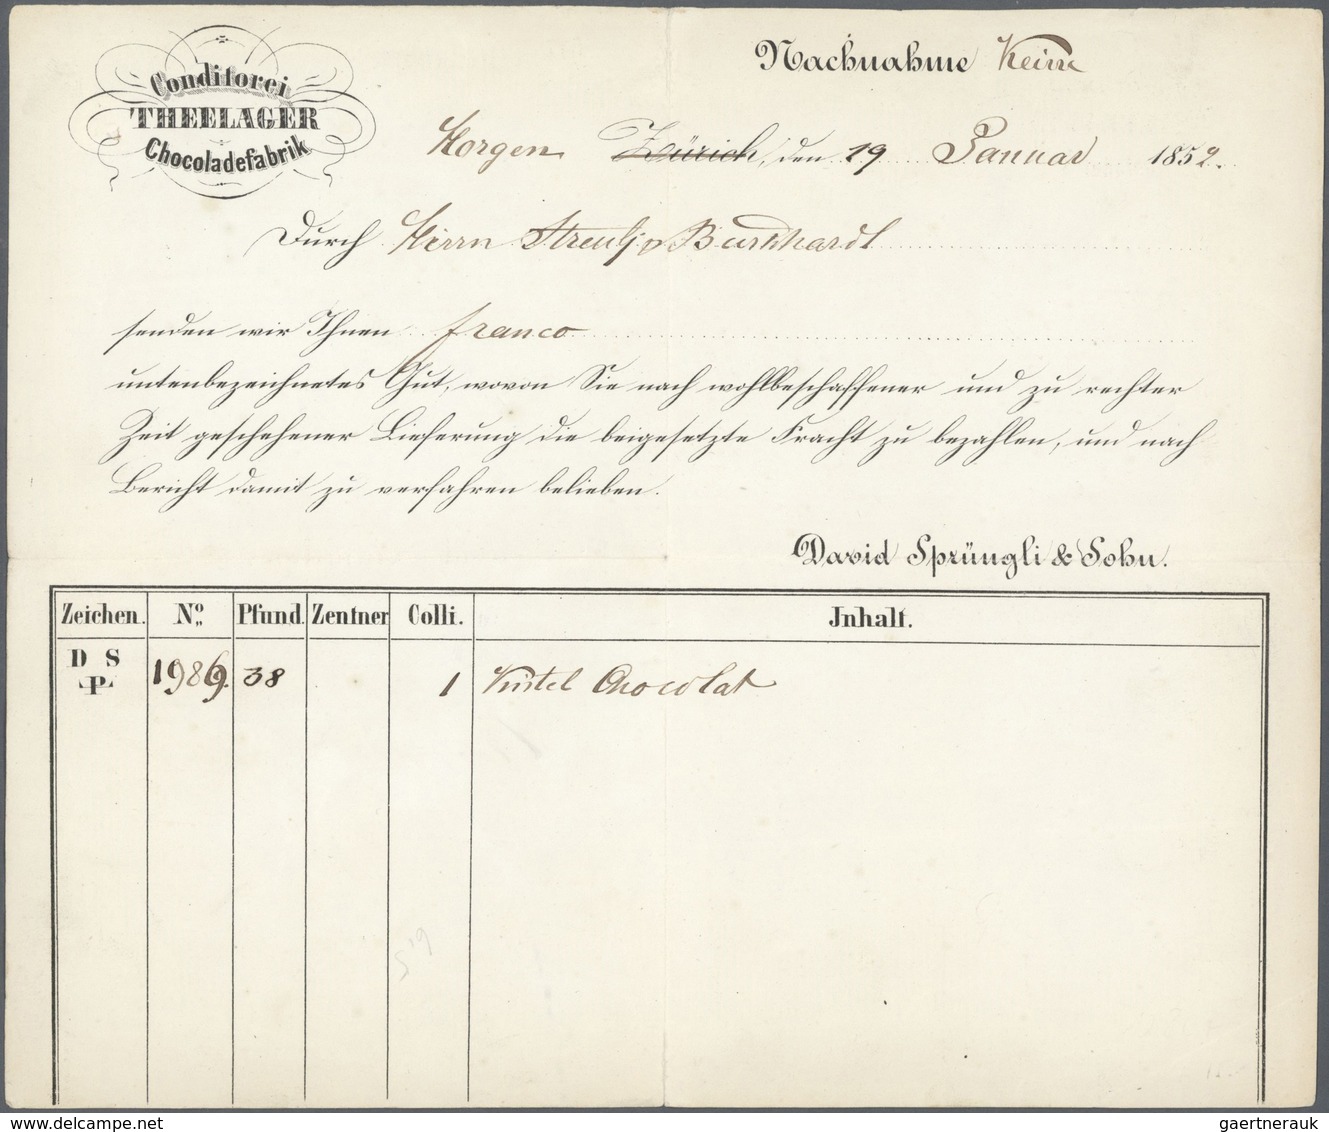 Conditorei
THEELAGER
Chocoladefabrik
Nachnahme Keine
Horgen Zürich, den 19 Januar 1859.
Durch Herrn Streuly Burkhardt
senden wir Ihnen franco
untenbezeichnetes Gut, wovon Sie nach wohlbeschaffener und zu rechter
Zeit geschehener Lieferung die beigesetzte Fracht zu bezahlen, und nach
Bericht damit zu verfahren belieben.
David Sprüngli & Sohn.
Zeichen. No. Pfund. Zentner Colli. Inhalt.
D S P 1989. 38 1 Kistel Chocolat
gaertnerauk